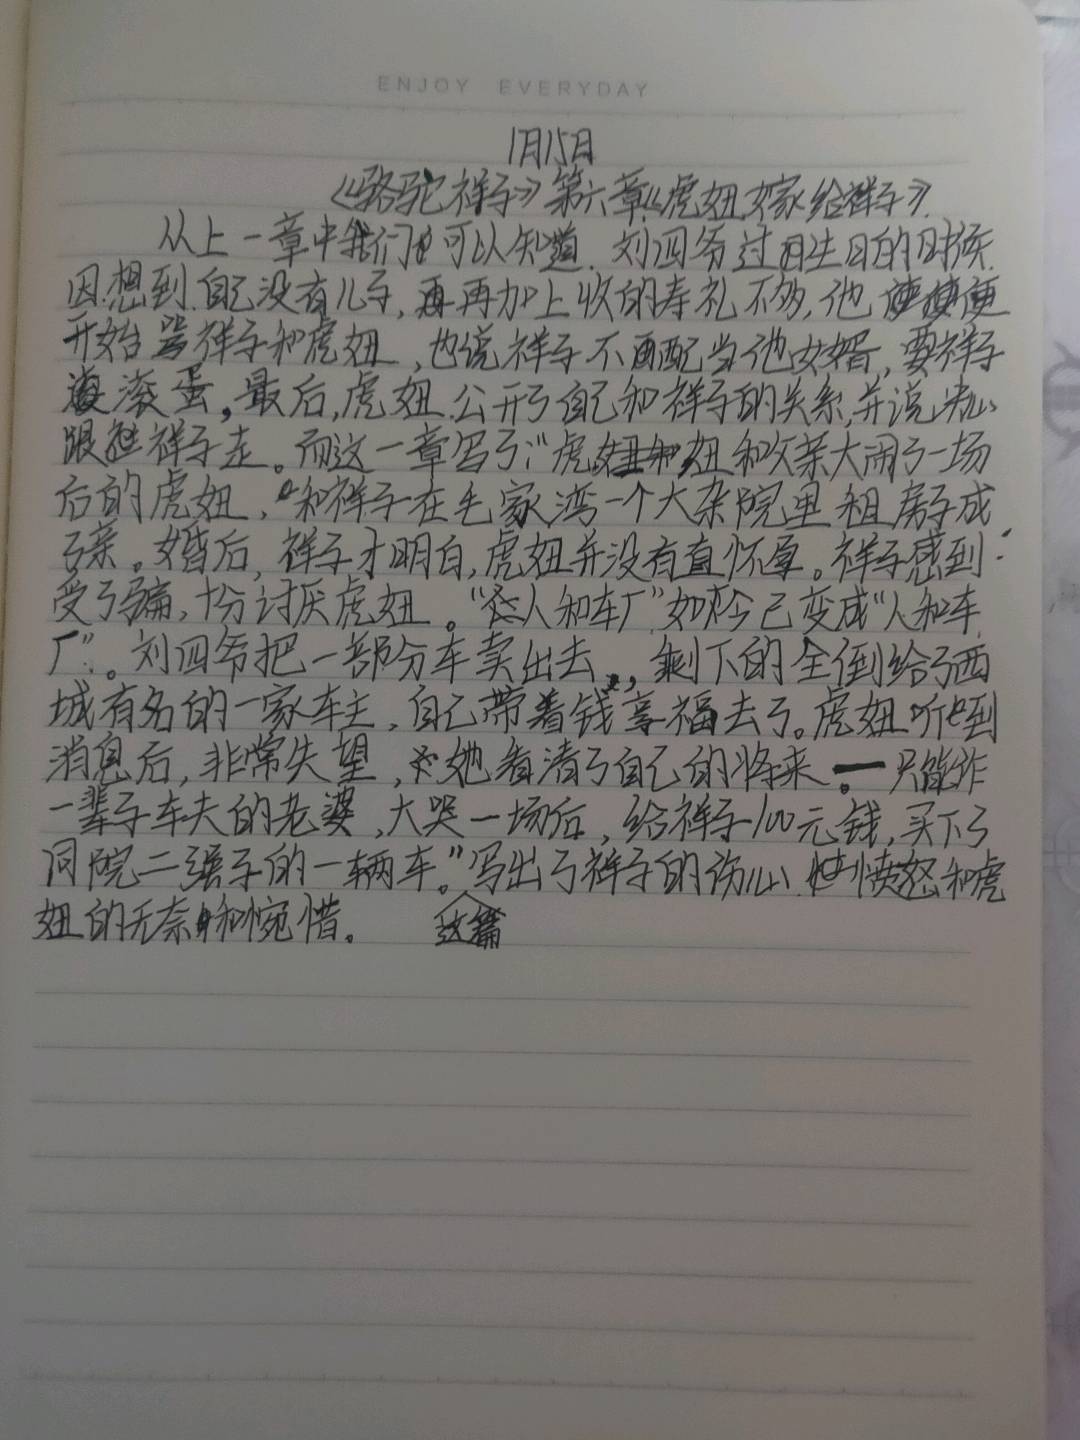 ENJOY EVERYDAY
1月15日
《骆驼祥子》第六章《虎妞嫁给祥子》
从上一章中我们可以知道.刘四爷过生日的时候.
因想到自己没有儿子,再加上收的寿礼不多,他便
开始骂祥子和虎妞,也说祥子不配当他女婿,要祥子
滚蛋,最后,虎妞公开了自己和祥子的关系,并说决心
跟祥子走。而这一章写了:“虎妞和父亲大闹了一场
后的虎妞,和祥子在毛家湾一个大杂院里租房子成
了亲。婚后,祥子才明白,虎妞并没有真怀孕。祥子感到
受了骗,十分讨厌虎妞。“人和车厂”如今已变成“人和车
厂”。刘四爷把一部分车卖出去,剩下的全倒给了西
城有名的一家车主,自己带着钱享福去了。虎妞听到
消息后,非常失望,她看清了自己的将来。一只能作
一辈子车夫的老婆,大哭一场后,给祥子100元钱,买下了
同院二强子的一辆车。”写出了祥子的伤心.愤怒和虎
妞的无奈和惋惜。 这篇